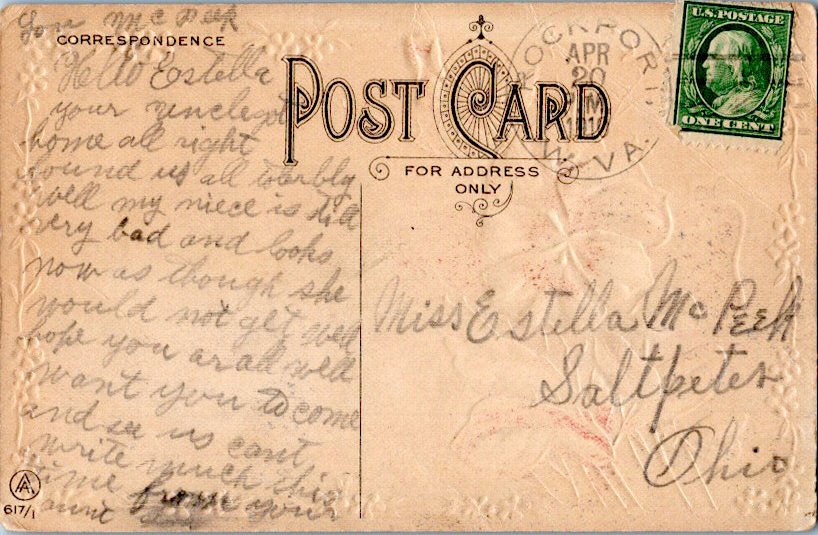 Lou McPeek
CORRESPONDENCE
POST CARD
FOR ADDRESS
ONLY
ROCKPORT
APR
20
W. VA.
U.S. POSTAGE
ONE CENT
Hello Estella
your uncle got
home all right
found us all
well my niece is still
very bad and looks
now as though she
would not get well
hope you ar all well
want you to come
and see us cant
write much this
time from your
aunt
Miss Estella McPeek
Saltpeter
Ohio
AA
617/1